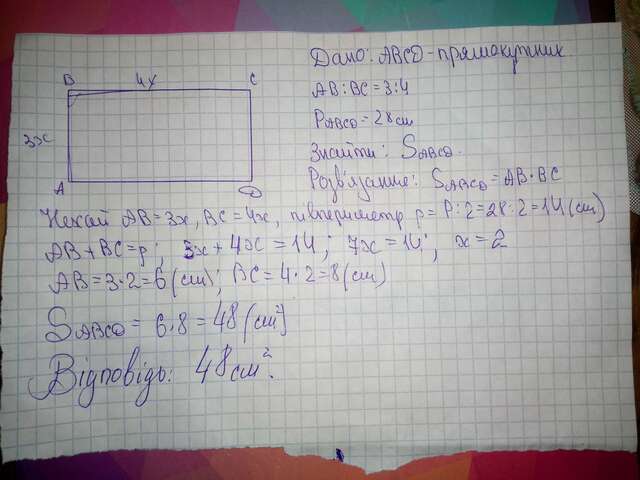 Дано: ABCD - прямокутник
B 4x C
AB:BC=3:4
3x
PABCD=28см
Знайти: SABCD.
A D
Розв'язання: SABCD=AB·BC
Нехай AB=3x, BC=4x, півпериметр p=P:2=28:2=14(см)
AB+BC=p; 3x+4x=14; 7x=14; x=2
AB=3·2=6(см); BC=4·2=8(см)
SABCD=6·8=48(см²)
Відповідь: 48см².